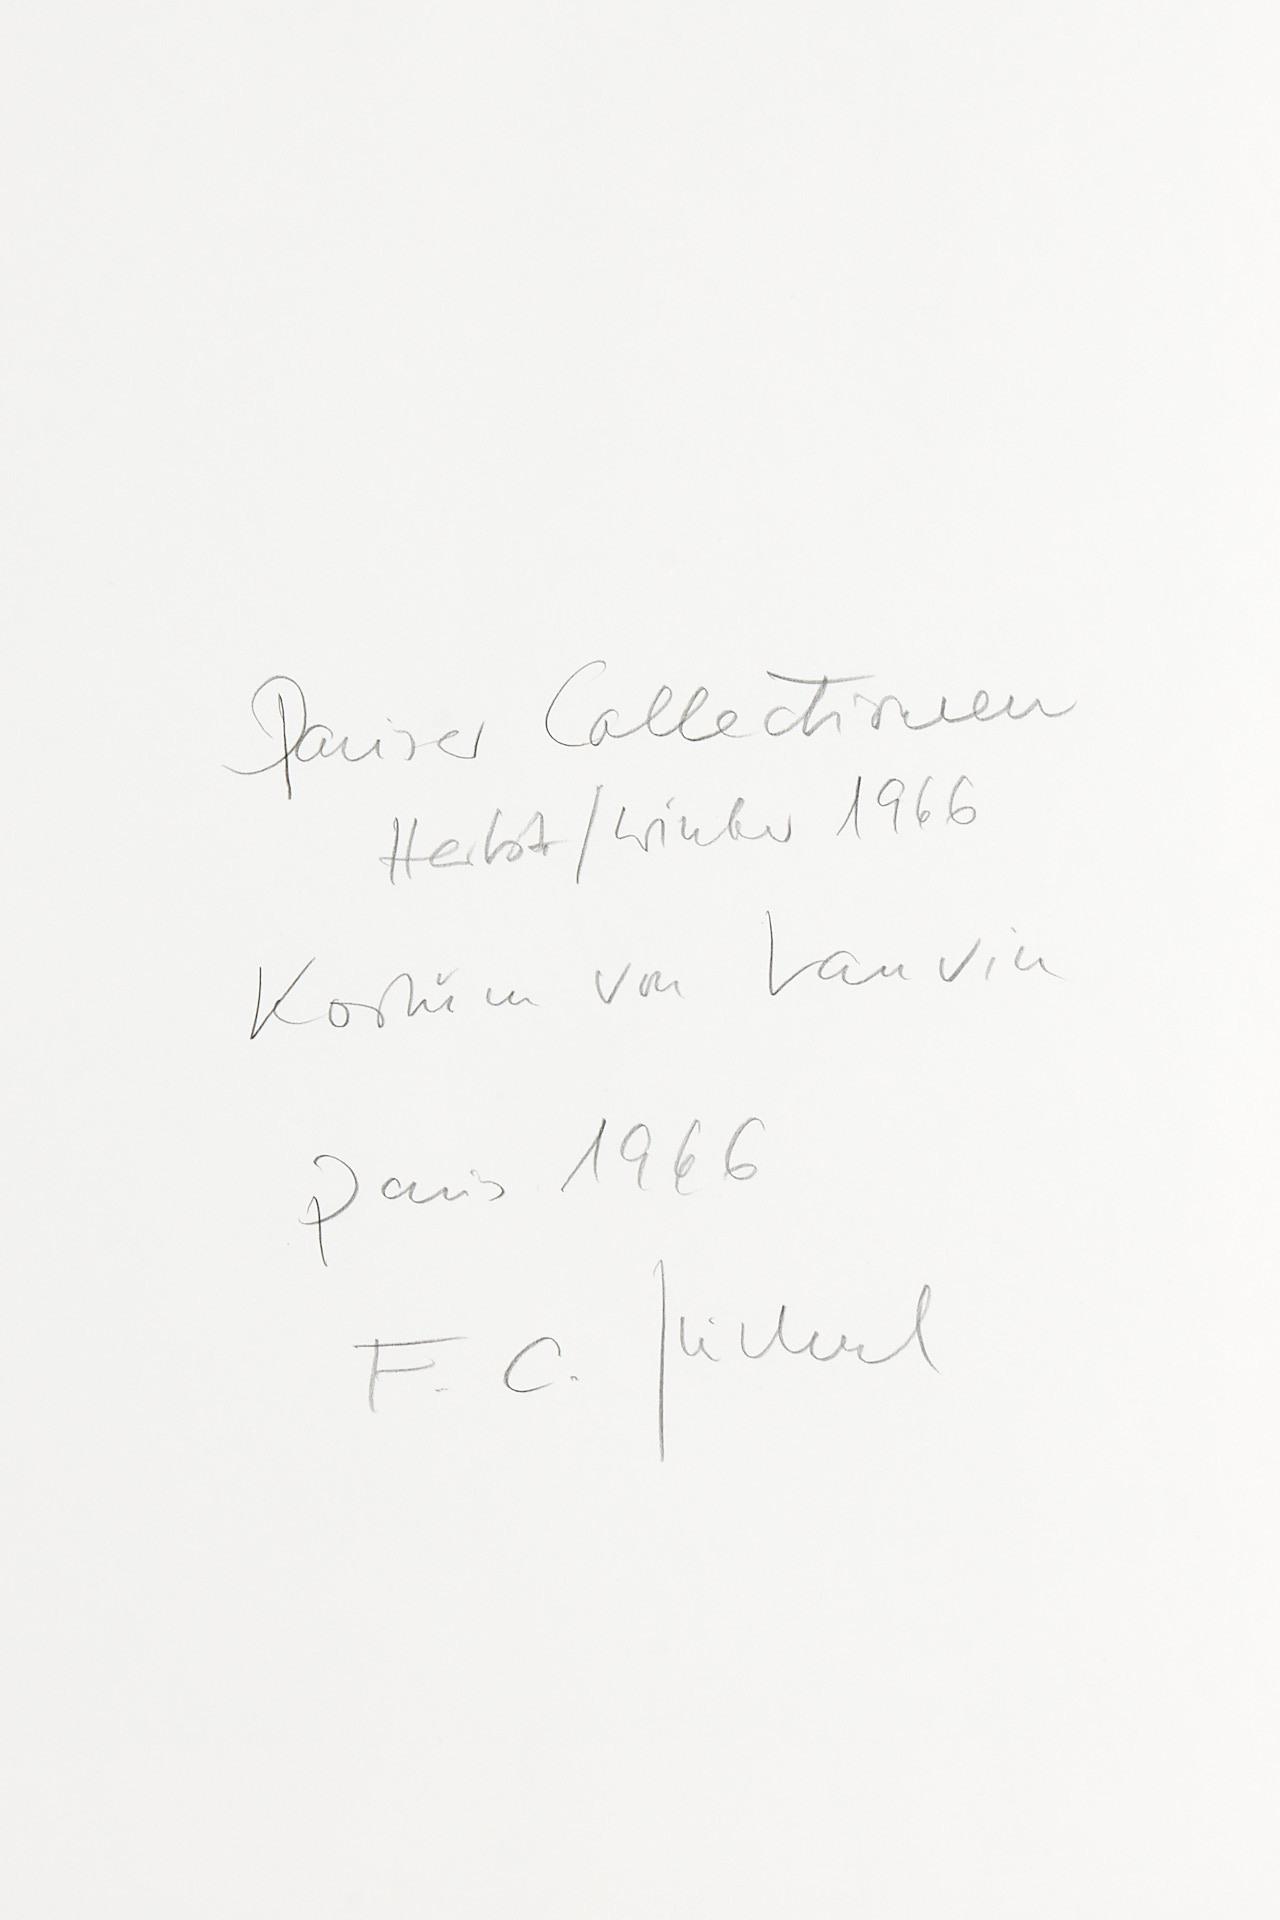 Pariser Collectionen
Herbst/Winter 1966
Kostüm von Lanvin
Paris 1966
F. C. Gundlach